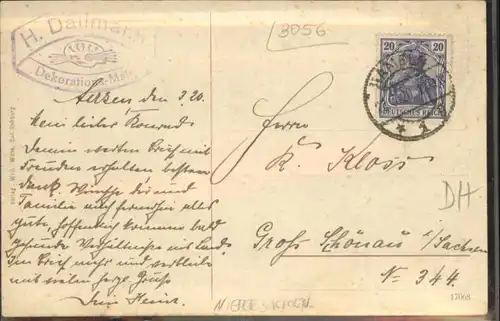 H. Dallmann
Dekorations-Mal
3056
20 20
DEUTSCHES REICH
1
Aerzen den 3.20.
Mein lieber Konrad
Deinen werten Brief mit
Freuden erhalten besten
Dank. Wünsche dir und
Familie auch fernerhin alles
gute, hoffentlich kommen bald
Verhältnisse mit Lands.
Im Brief mehr und verbleibe
mit vielen herzl. Gruß
Dein Heinr.
Herrn
K. Kloss
Groß Schönau i/Sachsen
No 344.
DH
17068